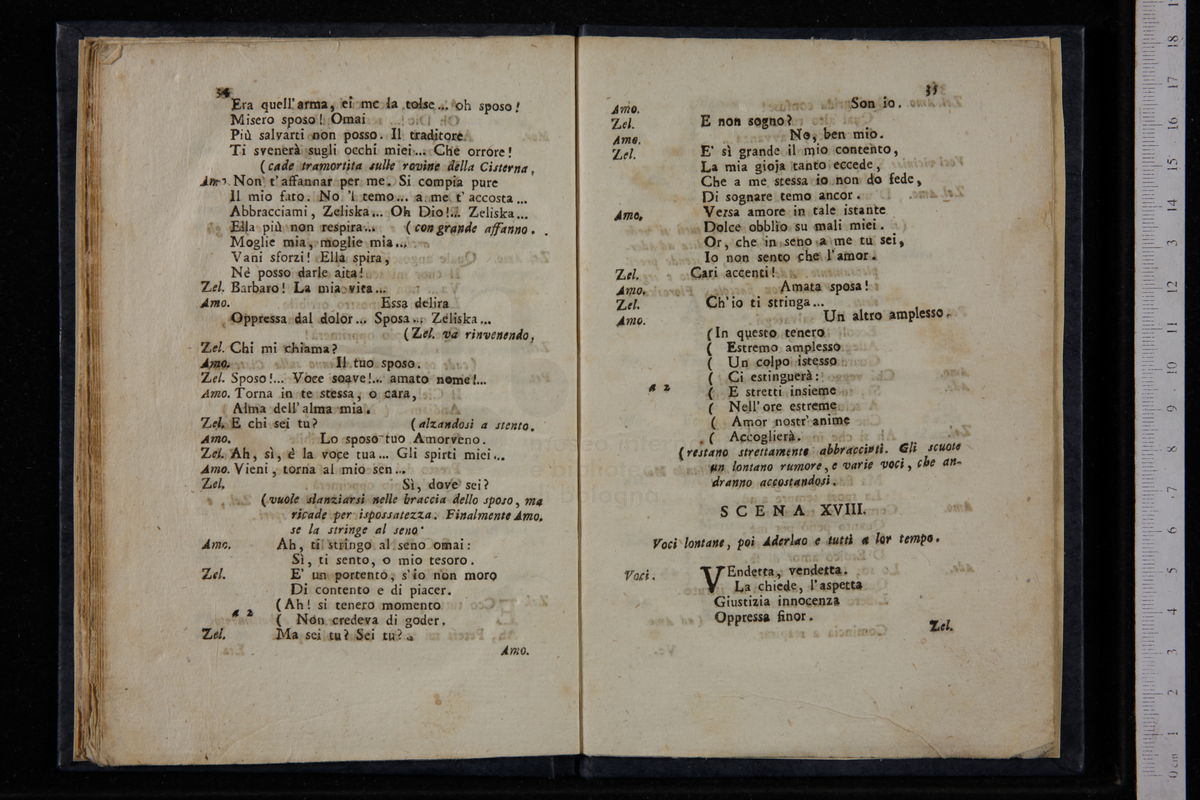 34
Era quell'arma, ei me la tolse... oh sposo!
Misero sposo! Omai
Più salvarti non posso. Il traditore
Ti svenerà sugli occhi miei... Che orrore!
(cade tramortita sulle rovine della Cisterna,
Amo. Non t'affannar per me. Si compia pure
Il mio fato. No 'l temo... a me t'accosta...
Abbracciami, Zeliska... Oh Dio!... Zeliska...
Ella più non respira... (con grande affanno.
Moglie mia, moglie mia...
Vani sforzi! Ella spira,
Nè posso darle aita!
Zel. Barbaro! La mia vita...
Amo. Essa delira
Oppressa dal dolor... Sposa... Zeliska...
(Zel. va rinvenendo,
Zel. Chi mi chiama?
Amo. Il tuo sposo.
Zel. Sposo!... Voce soave!... amato nome!...
Amo. Torna in te stessa, o cara,
Alma dell'alma mia.
Zel. E chi sei tu? (alzandosi a stento.
Amo. Lo sposo tuo Amorveno.
Zel. Ah, sì, è la voce tua... Gli spirti miei...
Amo. Vieni, torna al mio sen...
Zel. Sì, dove sei?
(vuole slanziarsi nelle braccia dello sposo, ma
ricade per ispossatezza. Finalmente Amo.
se la stringe al seno.
Amo. Ah, ti stringo al seno omai:
Sì, ti sento, o mio tesoro.
Zel. E' un portento, s'io non moro
Di contento e di piacer.
a 2 (Ah! si tenero momento
( Non credeva di goder.
Zel. Ma sei tu? Sei tu?
Amo.
35
Amo. Son io.
Zel. E non sogno?
Amo. No, ben mio.
Zel. E' sì grande il mio contento,
La mia gioja tanto eccede,
Che a me stessa io non do fede,
Di sognare temo ancor.
Amo. Versa amore in tale istante
Dolce obblìo su mali miei.
Or, che in seno a me tu sei,
Io non sento che l'amor.
Zel. Cari accenti!
Amo. Amata sposa!
Zel. Ch'io ti stringa...
Amo. Un altro amplesso.
(In questo tenero
( Estremo amplesso
( Un colpo istesso
( Ci estinguerà:
a 2 ( E stretti insieme
( Nell'ore estreme
( Amor nostr'anime
( Accoglierà.
(restano strettamente abbracciati. Gli scuote
un lontano rumore, e varie voci, che an-
dranno accostandosi.
SCENA XVIII.
Voci lontane, poi Aderlao e tutti a lor tempo.
Voci. VEndetta, vendetta.
La chiede, l'aspetta
Giustizia innocenza
Oppressa finor.
Zel.